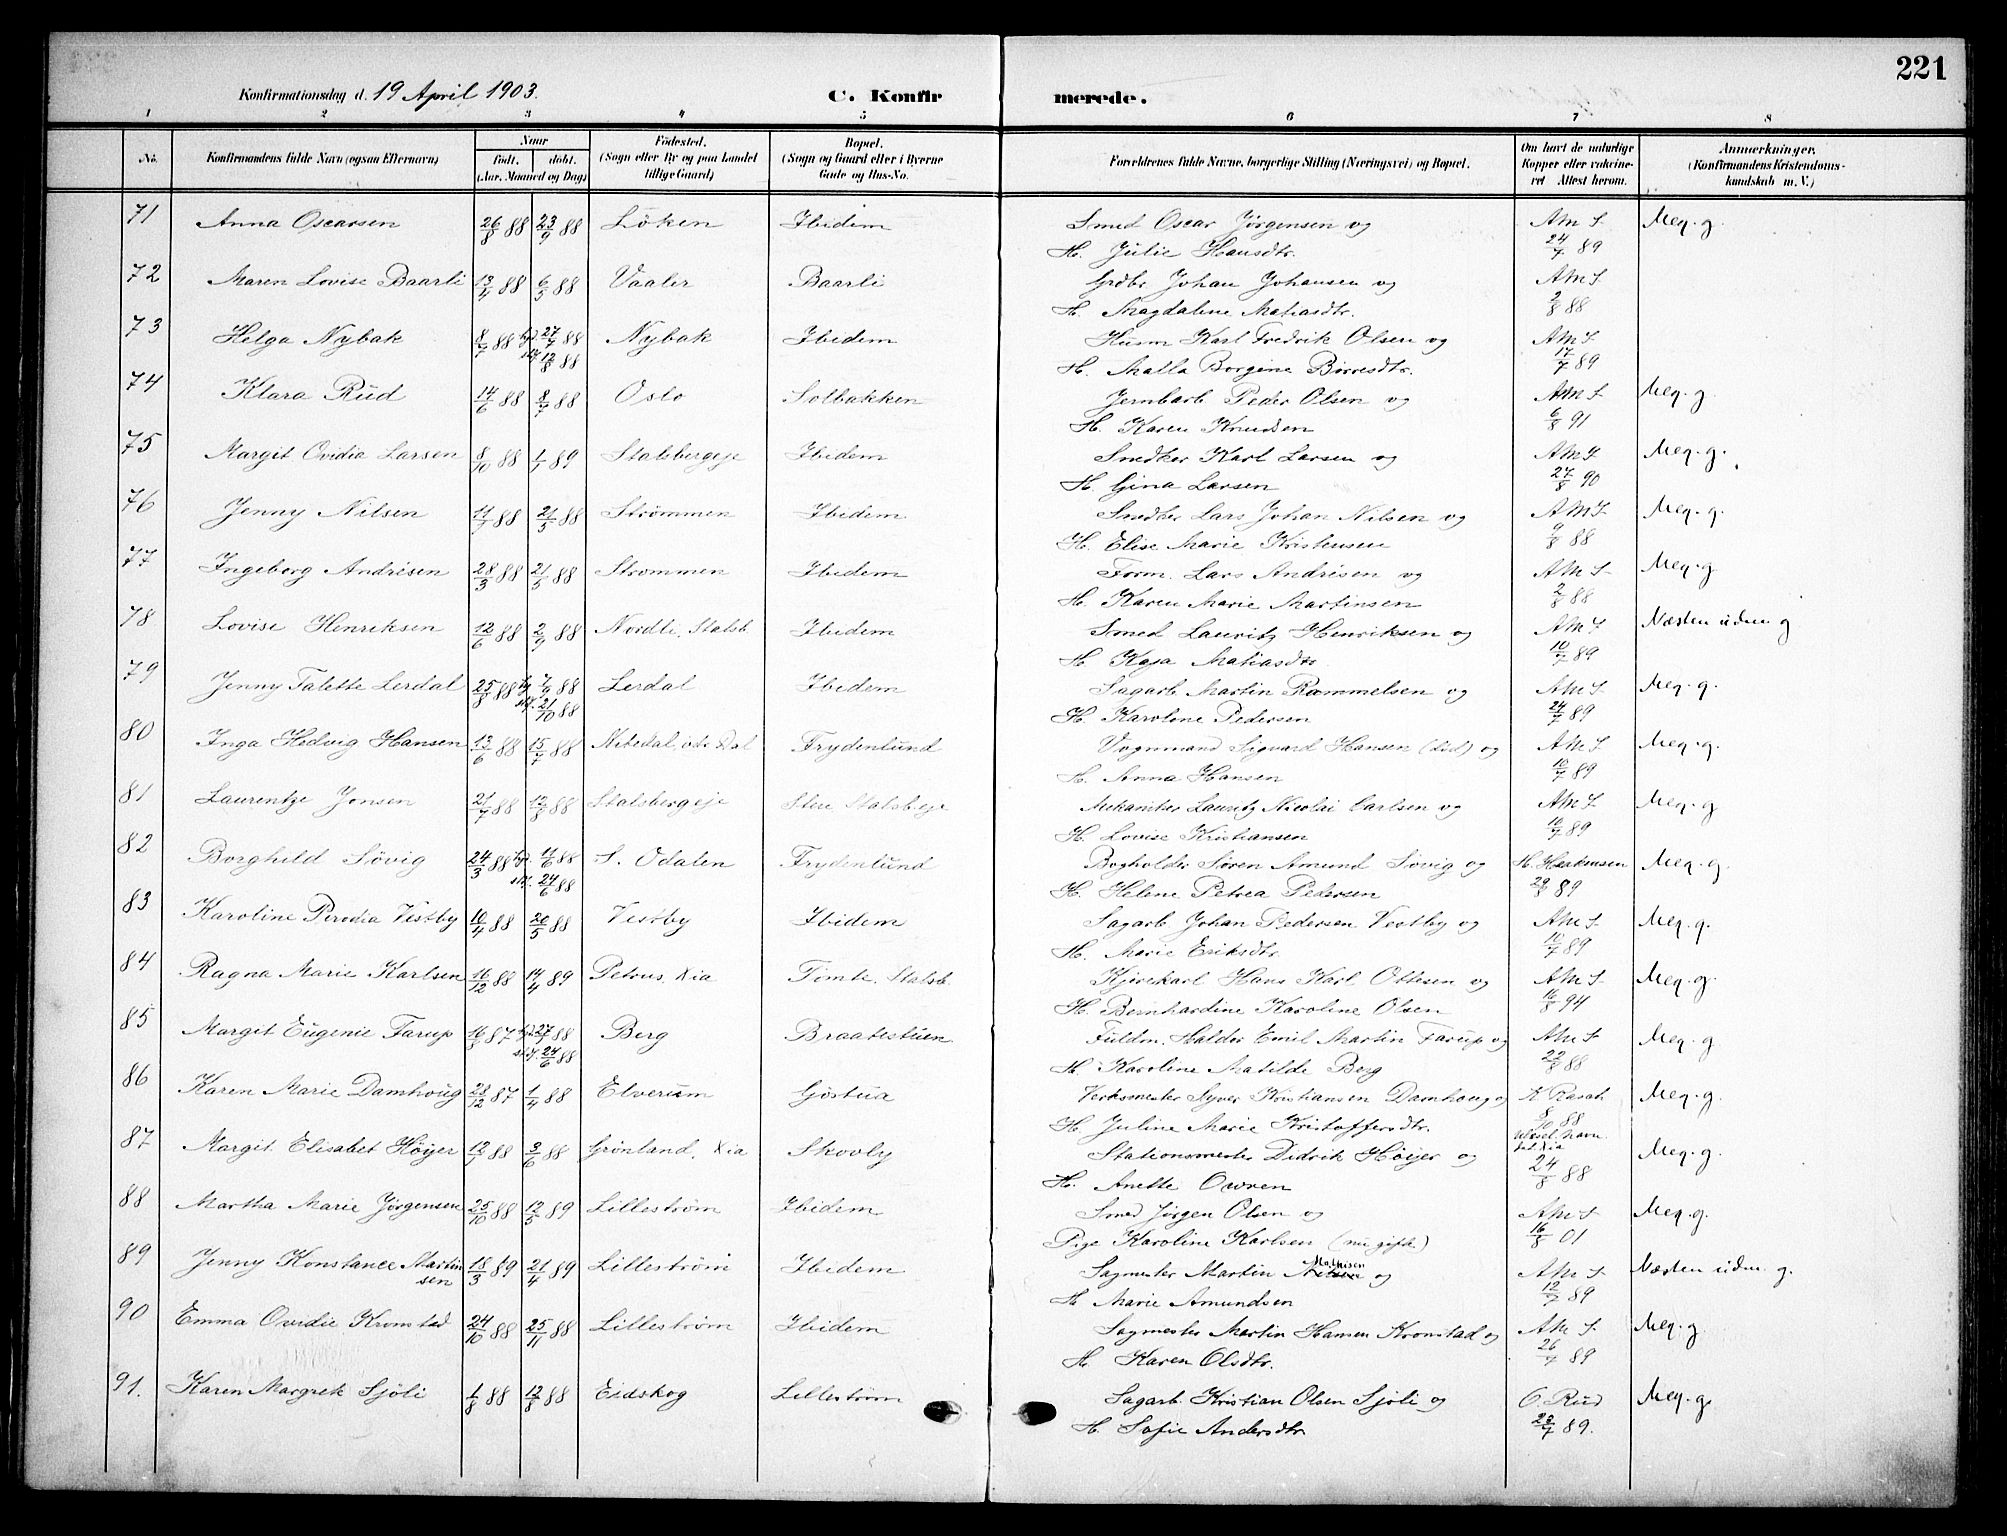 221
Konfirmationsdag d. 19 April 1903. C. Konfirmerede.
1 2 3 4 5 6 7 8
No. Konfirmandens fulde Navn (ogsaa Efternavn) Naar født. døbt. (Aar, Maaned og Dag) Fødested. (Sogn eller By og paa Landet tillige Gaard) Bopæl. (Sogn og Gaard eller i Byerne Gade og Hus-No. Forældrenes fulde Navne, borgerlige Stilling (Næringsvei) og Bopæl. Om havt de naturlige Kopper eller vakcineret Attest herom. Anmærkninger, (Konfirmandens Kristendomskundskab m. V.)
71 Anna Oscarsen 26/8 88 23/9 88 Löken Ibidem Smed Oscar Jørgensen og AmS Meg. g.
H. Julie Hansdtr. 24/7 89
72 Maren Lovise Baarli 13/4 88 6/5 88 Vaaler Baarli Grdbr Johan Johansen og AMS
H. Magdalene Matiasdtr. 2/8 88
73 Helga Nybak 8/7 88 27/7 88 Nybak Ibidem Husm Karl Fredrik Olsen og AMS
12/8 88 H. Malla Borgine Börresdtr. 17/7 89
74 Klara Rud 14/6 88 8/7 88 Oslo Solbakken Jernbarb Peder Olsen og AMS Meg. g
H. Karen Knudsen 6/8 91
75 Margit Ovidia Larsen 8/10 88 1/1 89 Stalsbergeje Ibidem Snedker Karl Larsen og AMS Meg. g.
H. Gina Larsen 27/8 90
76 Jenny Nilsen 11/1 88 21/5 88 Strømmen Ibidem Snedker Lars Johan Nilsen og AMS Meg. g.
H. Elise Marie Kristensen 9/8 88
77 Ingeborg Andrisen 28/3 88 21/5 88 Strømmen Ibidem Form. Lars Andrisen og AMS Meg. g
H. Karen Marie Martinsen 2/8 88
78 Lovise Henriksen 12/6 88 2/9 88 Nordli, Stalsb Ibidem Smed Lauritz Henriksen og AMS Næsten udm g
H. Kaja Matiasdtr 10/7 89
79 Jenny Talette Lerdal 25/8 88 7/9 88 Lerdal Ibidem Sagarb Martin Rammelsen og AMS Meg. g.
21/10 88 H. Karoline Pedersen 24/7 89
80 Inga Hedvig Hansen 13/6 88 15/7 88 Frydenlund Vognmand Sigvard Hansen (död) og AMS Meg. g.
H. Anna Hansen 10/7 89
81 Laurentze Jonsen 21/7 88 12/8 88 Stalsbergeje Stalsbeje Lauritz Nicolai Carlsen og AMS Meg. g
H. Lovise Kristiansen 10/7 89
82 Borghild Sövig 24/3 88 11/6 88 S. Odalen Frydenlund Bogholder Søren Amund Sövig og Meg. g.
24/6 88 H. Helene Petrea Pedersen 29/8 89
83 Karoline Vestby 10/4 88 20/5 88 Vestby Ibidem Sagarb Johan Pedersen Vestby og AMS Meg. g.
H. Marie Eriksdtr 10/7 89
84 Ragna Marie Karlsen 16/12 88 14/4 89 Petrus, Xia Tomte, Stalsb. Kjørekarl Hans Karl Ottesen og AMS Meg. g.
H. Bernhardine Karoline Olsen 16/8 94
85 Margit Eugenie Farup 16/8 87 27/1 88 Berg Braatestuen Fuldm. Halder Emil Martin Farup og AMS Meg. g
24/6 88 H. Karoline Matilde Berg 22/8 88
86 Karen Marie Damhoug 28/12 87 1/4 88 Elverum Göstua Verksmester Syver Kristiansen Damhoug og Meg. g.
H. Juline Marie Kristoffersdtr. 8/10 88
87 Margit Elisabet Höyer 12/1 88 3/6 88 Grönland, Xia Skovly Stationsmester Didrik Höyer og Meg. g.
H. Anette Owren 24/8 88
88 Martha Marie Jørgensen 25/10 88 12/5 89 Lilleström Ibidem Smed Jörgen Olsen og AMS Meg. g.
Pige Karoline Karlsen (nu gift) 16/8 01
89 Jenny Konstance Martinsen 18/3 89 21/4 89 Lilleström Ibidem Sagmester Martin og AMS Næsten udm. g.
H. Marie Amundsen 12/7 89
90 Emma Ovidie Kronstad 24/10 88 25/11 88 Lilleström Ibidem Sagmester Martin Hansen Kronstad og AMS Meg. g
H. Karen Olsdtr. 26/7 89
91. Karen Margrete Sjöli 1/8 88 12/8 88 Eidskog Lilleström Sagarb. Kristian Olsen Sjöli og O. Rud Meg. g
H. Sofie Andersdtr 23/7 89.